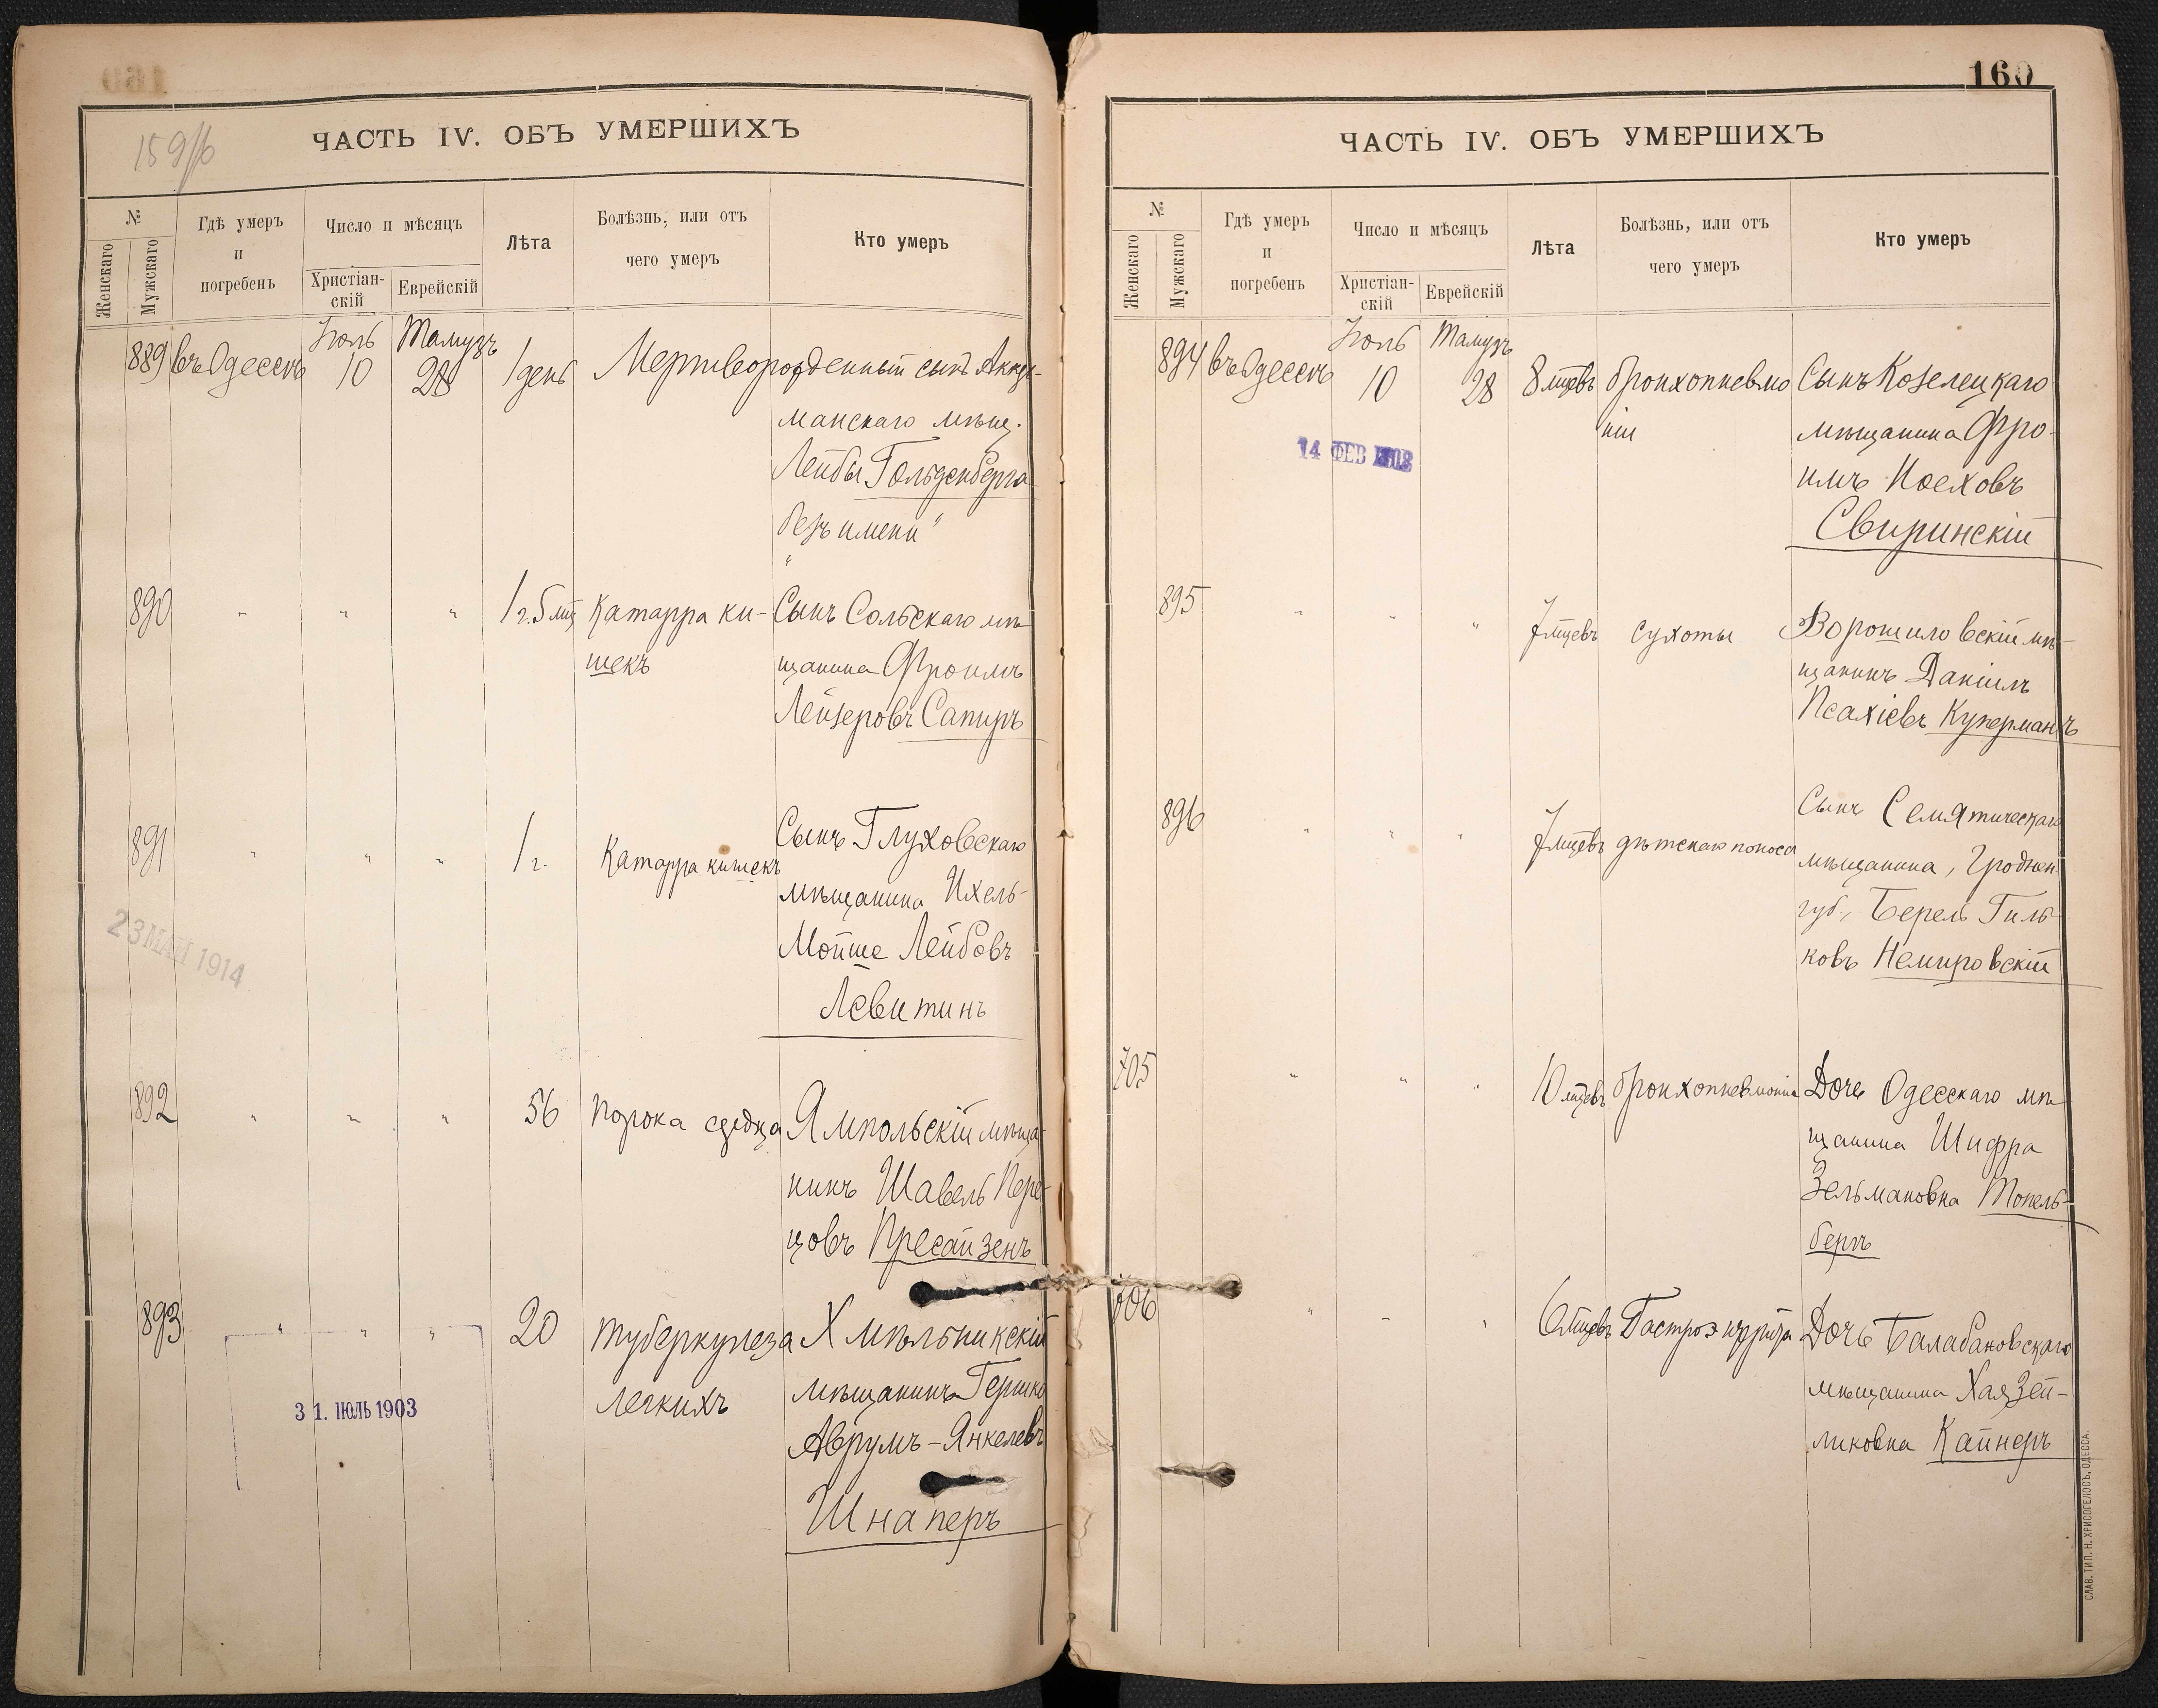 159/б
ЧАСТЬ IV. ОБЪ УМЕРШИХЪ
№
Женскаго
Мужскаго
Гдѣ умеръ
и
погребенъ
Число и мѣсяцъ
Христіан-
скій
Еврейскій
Лѣта
Болѣзнь, или отъ
чего умеръ
Кто умеръ
Іюль Тамузъ
889 въ Одессѣ 10 28 1 день Мертворожденный сынъ Аккер-
манскаго мѣщ.
Лейбы Гольденберга
безъ имени"
890 " " " 1 г. 5 мц Катарра ки- Сынъ Сольскаго мѣ-
шекъ щанина Фроимъ
Лейзеровъ Сапиръ
891 " " " 1 г. Катарра кишекъ Сынъ Глуховскаго
мѣщанина Ихель-
Мойше Лейбовъ
Левитинъ
23 МАЙ 1914
892 " " " 56 порока сердца Ямпольскій мѣща-
нинъ Шавель Пере-
цовъ Пресайзенъ
893 " " " 20 туберкулеза Хмѣльникскій
легкихъ мѣщанинъ Гершко
Аврумъ-Янкелевъ
Шнаперъ
31. ІЮЛЬ 1903
160
ЧАСТЬ IV. ОБЪ УМЕРШИХЪ
№
Женскаго
Мужскаго
Гдѣ умеръ
и
погребенъ
Число и мѣсяцъ
Христіан-
скій
Еврейскій
Лѣта
Болѣзнь, или отъ
чего умеръ
Кто умеръ
Іюль Тамузъ
894 въ Одессѣ 10 28 8 мцевъ бронхопневмо Сынъ Козелецкаго
ніи мѣщанина Фро-
имъ Іосховъ
Свиринскій
14 ФЕВ
895 " " " 7 мцевъ сухоты Ворошиловскій мѣ-
щанинъ Даніилъ
Псахіевъ Куперманъ
896 " " " 7 мцевъ дѣтскаго поноса Сынъ Семятическаго
мѣщанина, Гроднен.
губ., Берель Гиль-
ковъ Немировскій
705 " " " 10 мцевъ бронхопневмоніи Дочь Одесскаго мѣ-
щанина Шифра
Зельмановна Топель-
бергъ
706 " " " 6 мцевъ Гастроэнтерита Дочь Балабановскаго
мѣщанина Хая Зей-
ликовна Кайнеръ
СЛАВ. ТИП. Н. ХРИСОГЕЛОСЪ, ОДЕССА.